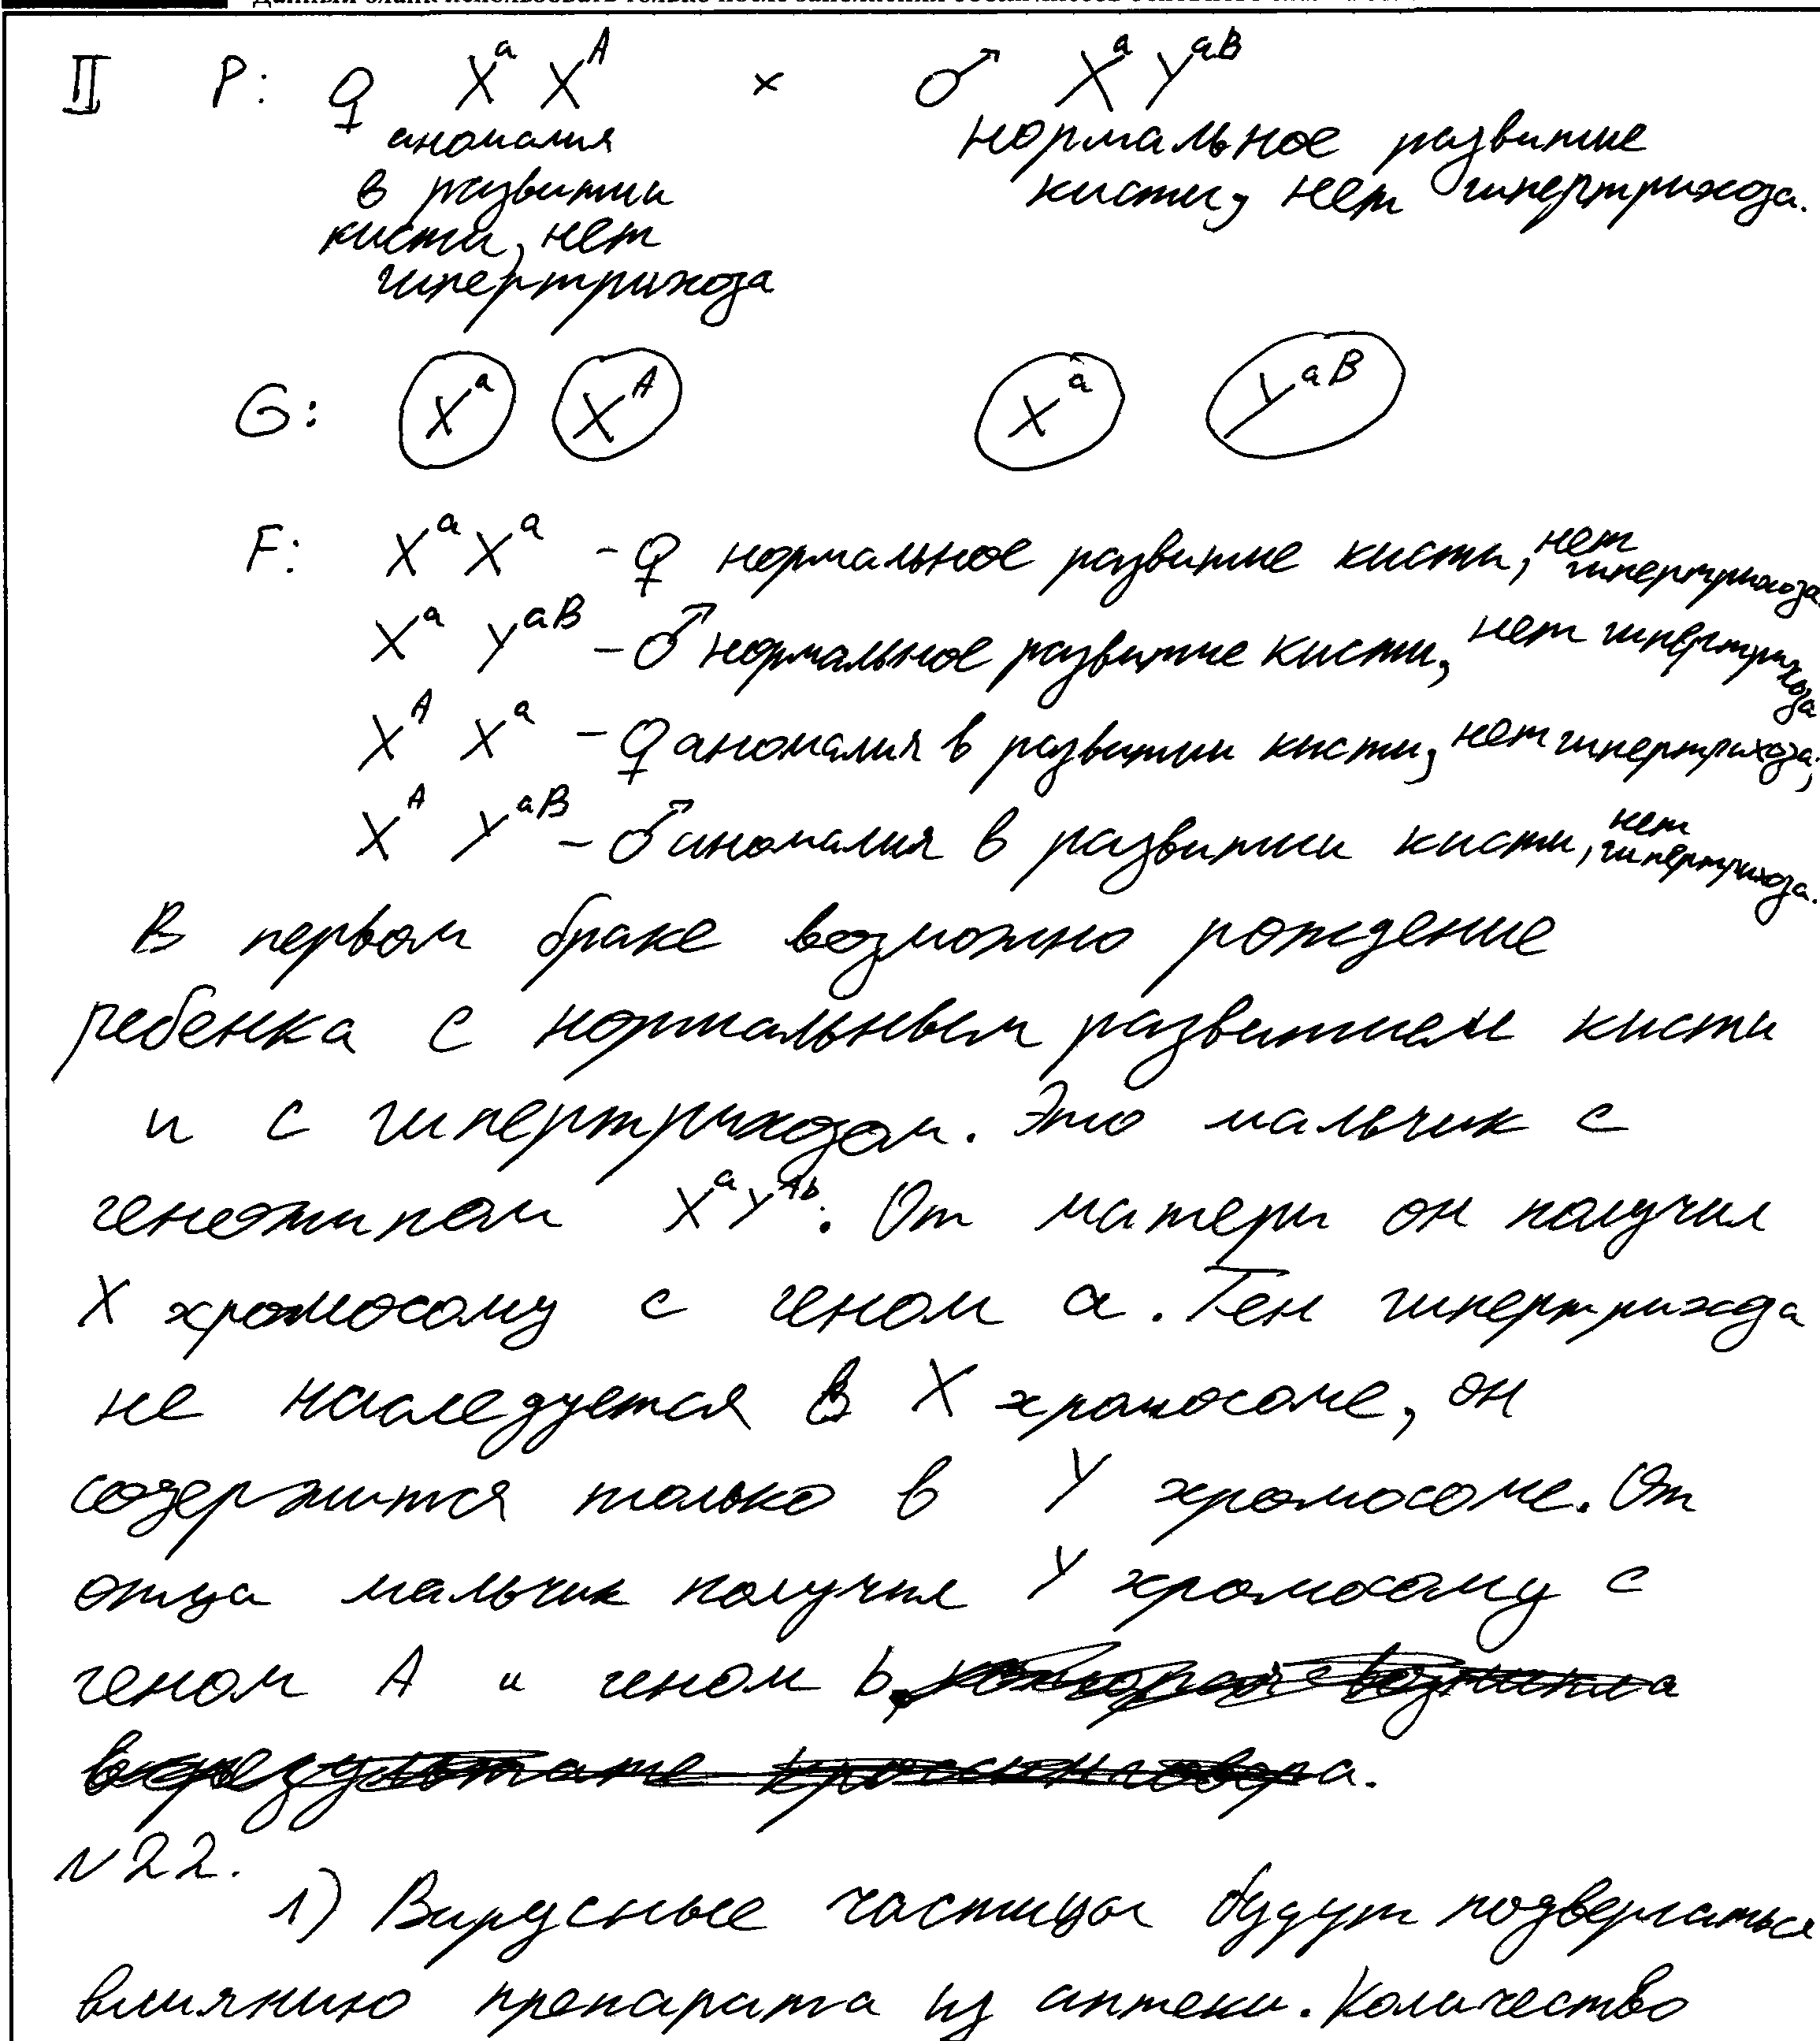 II P: ♀ XᵃXᴬ × ♂ XᵃYᵃᴮ
аномалия в развитии кисти, нет гипертрихоза
нормальное развитие кисти, нет гипертрихоза.
G: Xᵃ Xᴬ Xᵃ Yᵃᴮ
F: XᵃXᵃ - ♀ нормальное развитие кисти, нет гипертрихоза
XᵃYᵃᴮ - ♂ нормальное развитие кисти, нет гипертрихоза
XᴬXᵃ - ♀ аномалия в развитии кисти, нет гипертрихоза;
XᴬYᵃᴮ - ♂ аномалия в развитии кисти, нет гипертрихоза.
В первом браке возможно рождение
ребенка с нормальным развитием кисти
и с гипертрихозом. Это мальчик с
генотипом XᵃYᴬᵇ. От матери он получил
X хромосому с геном а. Ген гипертрихоза
не наследуется в X хромосоме, он
содержится только в Y хромосоме. От
отца мальчик получил Y хромосому с
геном A и геном b, которая возникла
в результате кроссинговера.
№22.
1) Вирусные частицы будут подвергаться
влиянию препарата из аптеки. Количество